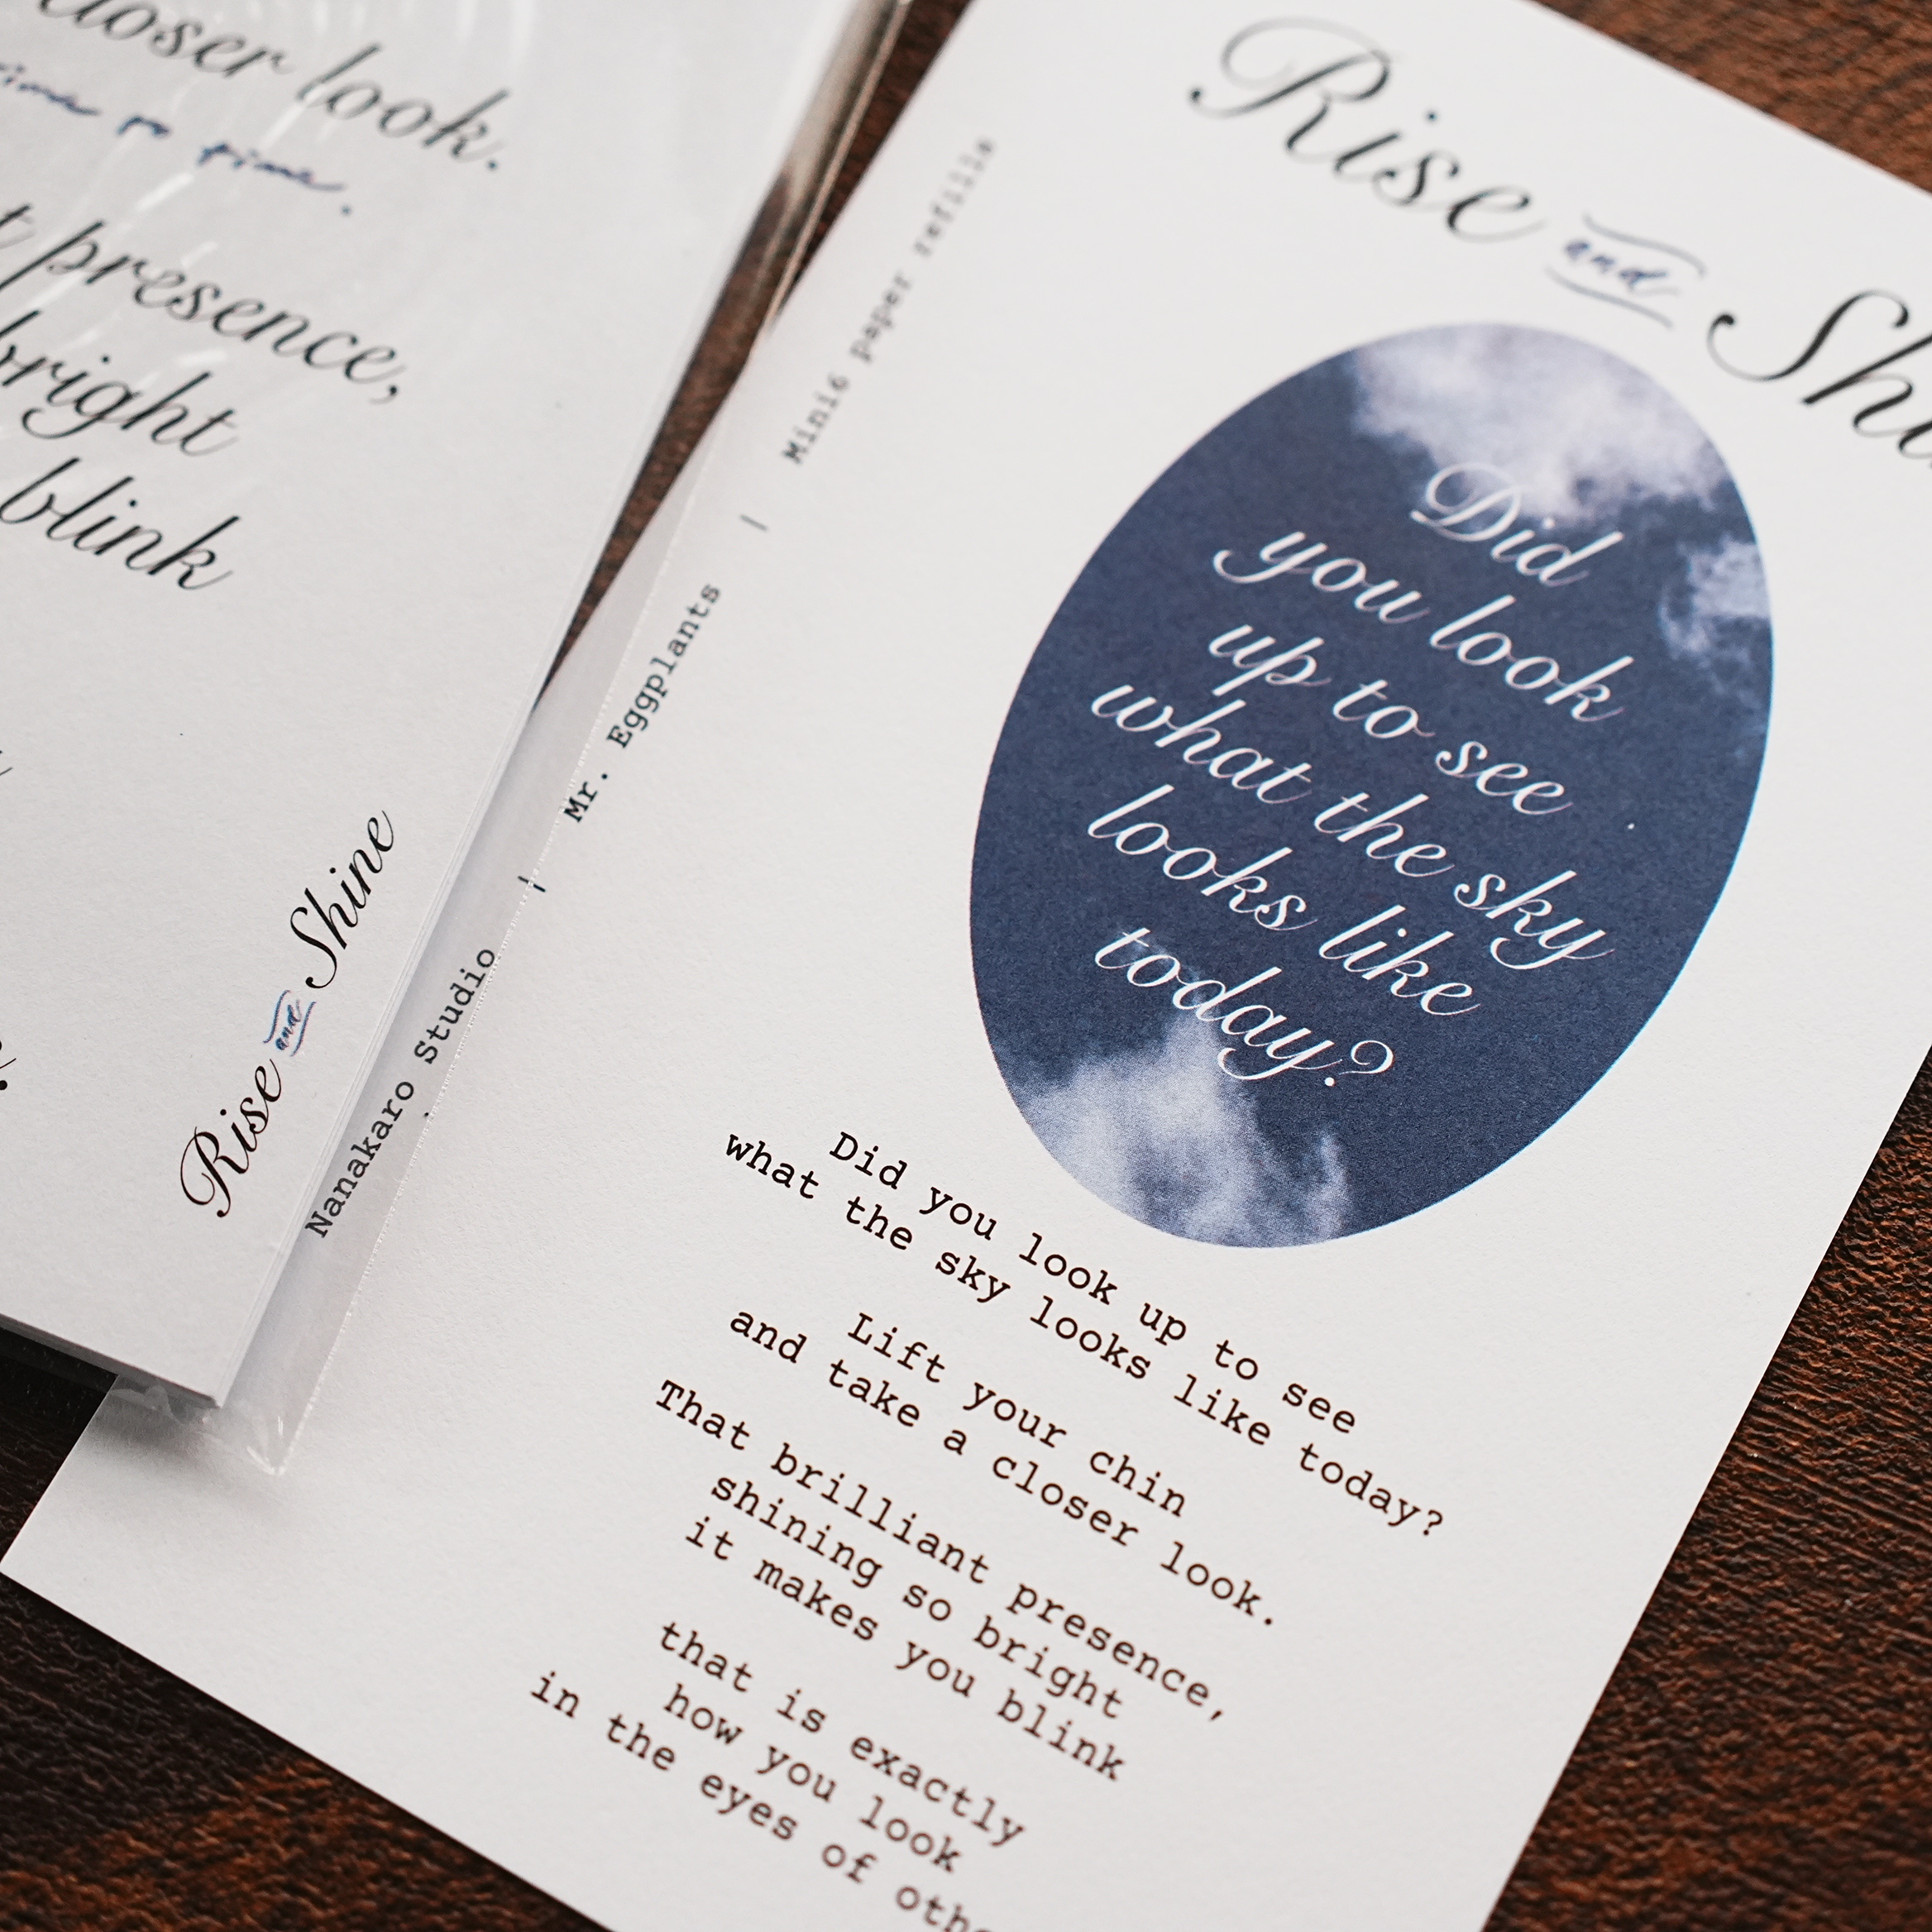 closer look.
time to time.
presence,
bright
blink
Rise and Shine
Nanakaro Studio | Mr. Eggplants | Mini6 paper refills
Rise and Shi
Did
you look
up to see
what the sky
looks like
today?
Did you look up to see
what the sky looks like today?
Lift your chin
and take a closer look.
That brilliant presence,
shining so bright
it makes you blink
that is exactly
how you look
in the eyes of othe